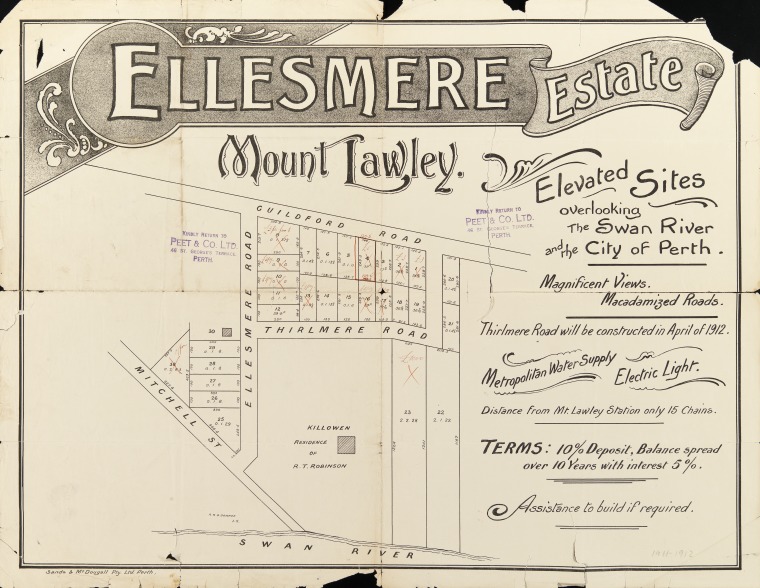 ELLESMERE Estate
Mount Lawley.
Elevated Sites
overlooking
The Swan River
and the City of Perth.
Magnificent Views.
Macadamized Roads.
Thirlmere Road will be constructed in April of 1912.
Metropolitan Water Supply
Electric Light.
Distance from Mt. Lawley Station only 15 Chains.
TERMS: 10% Deposit, Balance spread
over 10 Years with interest 5%.
Assistance to build if required.
KINDLY RETURN TO
PEET & CO. LTD.
46 ST. GEORGE'S TERRACE,
PERTH.
KINDLY RETURN TO
PEET & CO. LTD.
46 ST. GEORGE'S TERRACE,
PERTH.
GUILDFORD ROAD
ELLESMERE ROAD
THIRLMERE ROAD
MITCHELL ST
30
29
28
27
26
25
23
22
KILLOWEN
RESIDENCE
OF
R. T. ROBINSON
SWAN RIVER
Sands & McDougall Pty. Ltd. Perth.
1911-1912